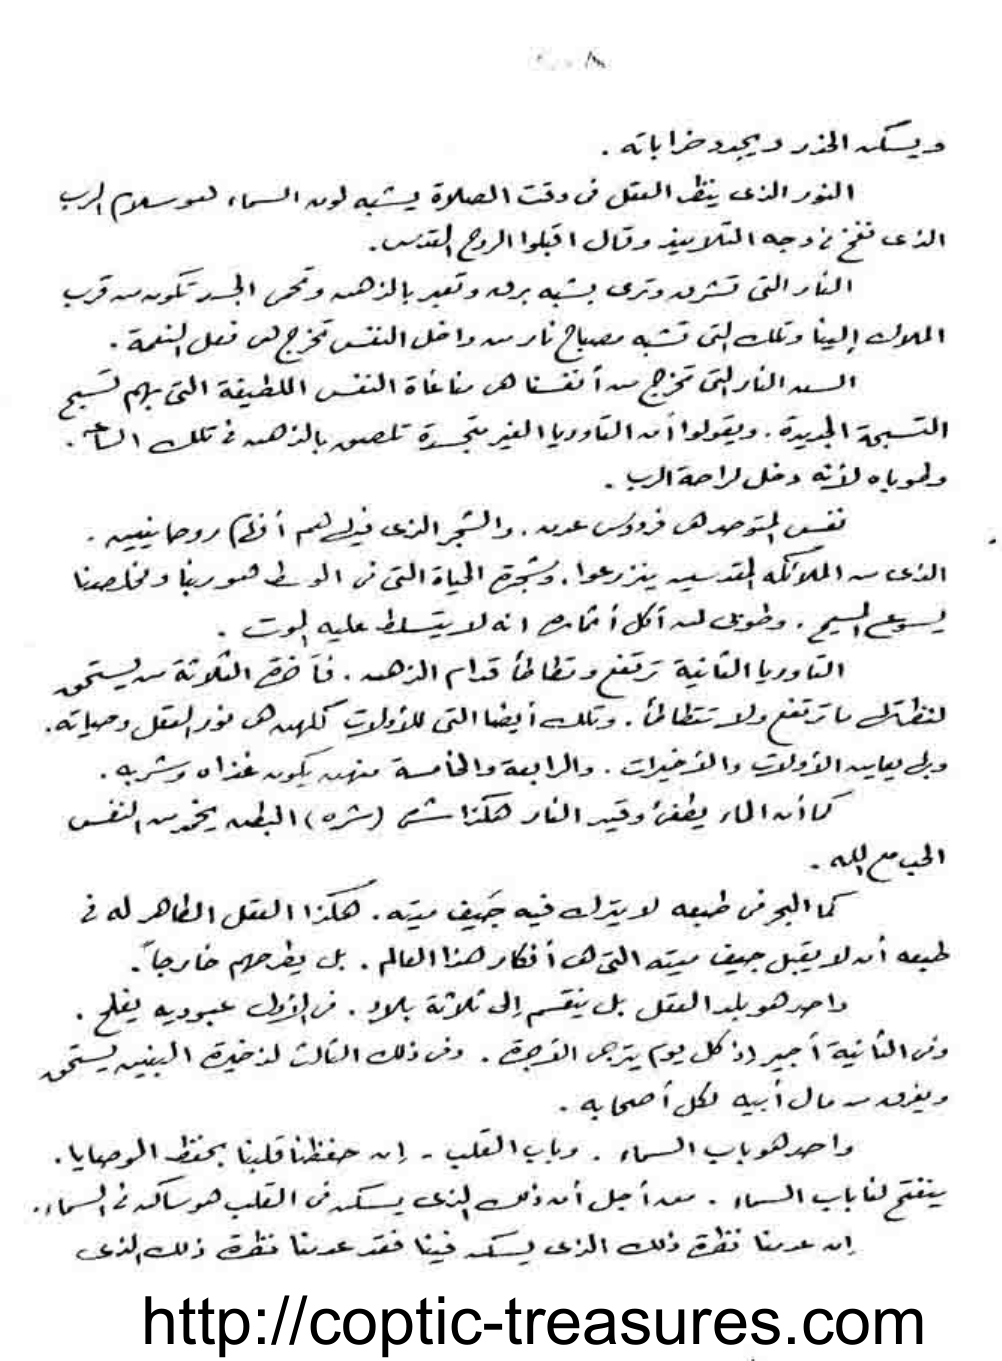 ويسكن الحذر ويجدد خراباته .
النور الذى ينظر العقل فى وقت الصلاة يشبه لون السماء هو سلام الرب
الذى نفخ فى وجه التلاميذ وقال اقبلوا الروح القدس .
النار التى تشرق وترى بشبه برق وتعبر بالذهن وتحمى الجسد تكون من قرب
الملاك إلينا وتلك التى تشبه مصباح نار من داخل النفس تخرج هى فعل النعمة .
ألسن النار التى تخرج من أنفسنا هى مناغاة النفس اللطيفة التى بهم تسبح
التسبحة الجديدة . ويقولوا أن التاوريا الغير متجسدة تلصق بالذهن فى تلك الساعة .
وطوباه لأنه دخل لراحة الرب .
نفس المتوحد هى فردوس عدن . والشجر الذى فيه هم أفهام روحانيين .
الذى من الملائكة القديسين ينزرعوا . وشجرة الحياة التى فى الوسط هو ربنا ومخلصنا
يسوع المسيح . وطوبى لمن أكل أثماره انه لا يتسلط عليه الموت .
التاوريا الثانية ترتفع وتطاطأ قدام الذهن . فآخرة الثلاثة من يستحق
لنظرتك ما ترتفع ولا تتطاطأ . وتلك أيضا التى للأولات كلهن هى نور العقل وحياته .
وبى يعاين الأولات والأخيرات . والرابعة والخامسة منهن يكون غذاه وشربه .
كما أن الماء يطفئ وقيد النار هكذا شره (شره) البطن يخمد من النفس
الحب مع الله .
كما البحر فى طبعه لا يترك فيه جيف ميته . هكذا العقل الطاهر له فى
طبعه أن لا يقبل جيف ميته التى هى أفكار هذا العالم . بل يطرحهم خارجاً .
واحد هو بلد العقل بل ينقسم إلى ثلاثة بلاد . فى الأول عبوديه يفلح .
وفى الثانية أجير إذ كل يوم يترجى الأجرة . وفى ذلك الثالث لذخيرة البنين يستحق
ويفرق من مال أبيه لكل أصحابه .
واحد هو باب السماء . وباب القلب - إن حفظنا قلبنا بحفظ الوصايا .
ينفتح لنا باب السماء . من أجل أن ذلك الذى يسكن فى القلب هو ساكن فى السماء .
إن عدمنا نظرة ذلك الذى يسكن فينا فقد عدمنا نظرة ذلك الذى
http://coptic-treasures.com